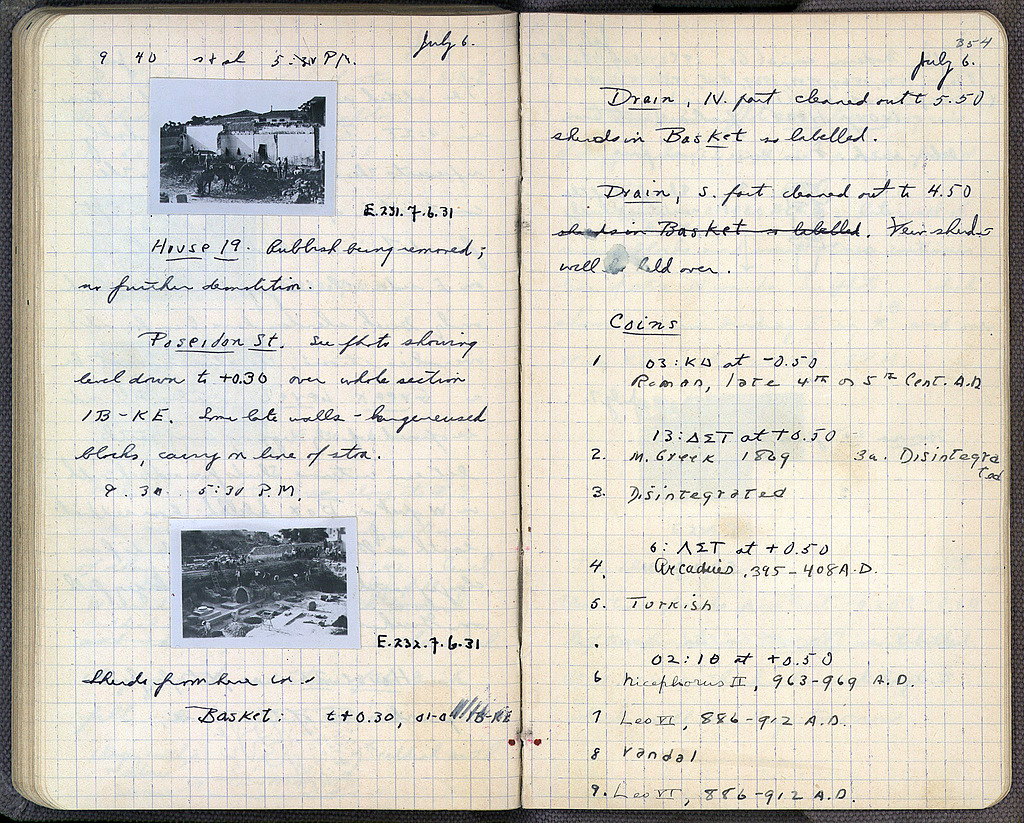 July 6.
9 40 5:30 P.M.
E.231.7.6.31
House 19. Rubbish being removed;
no further demolition.
Poseidon St. See photo showing
level down to +0.30 over whole section
IB-KE. Some late walls - large reused
blocks, carry on line of stoa.
9.30 5:30 P.M.
E.232.7.6.31
Sherds from here in
Basket: t+0.30, 01-0 IB-KE
354
July 6.
Drain, N. part cleaned out t 5.50
sherds in Basket so labelled.
Drain, S. part cleaned out to 4.50
sherds in Basket so labelled. Their sherds
will be held over.
Coins
1 03:KΔ at -0.50
Roman, late 4th or 5th Cent. A.D
13:ΔΣΤ at +0.50
2. M. Greek 1869 3a. Disintegrated
3. Disintegrated
6: ΛΣΤ at +0.50
4. Arcadius, 395-408 A.D.
5. Turkish
02:1Θ at +0.50
6 Nicephorus II, 963-969 A.D.
7 Leo VI, 886-912 A.D.
8 Vandal
9. Leo VI, 886-912 A.D.